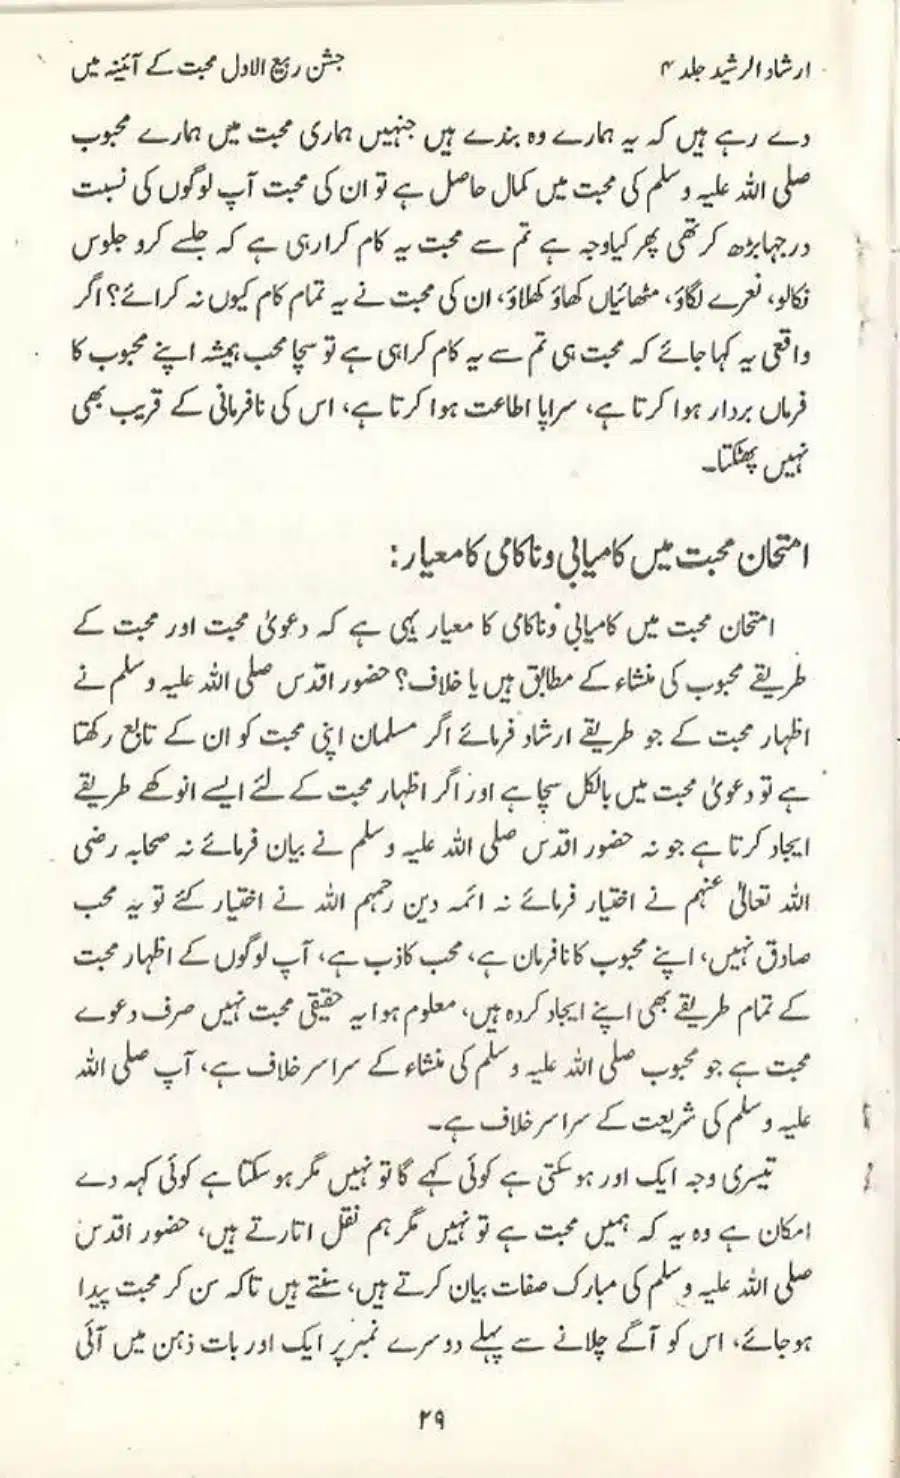 ارشاد الرشید جلد ۴
جشن ربیع الاول محبت کے آئینہ میں
دے رہے ہیں کہ یہ ہمارے وہ بندے ہیں جنہیں ہماری محبت میں ہمارے محبوب
صلی اللہ علیہ وسلم کی محبت میں کمال حاصل ہے تو ان کی محبت آپ لوگوں کی نسبت
درجہا بڑھ کر تھی پھر کیا وجہ ہے تم سے محبت یہ کام کرا رہی ہے کہ جلسے کرو جلوس
نکالو، نعرے لگاؤ، مٹھائیاں کھاؤ کھلاؤ، ان کی محبت نے یہ تمام کام کیوں نہ کرائے؟ اگر
واقعی یہ کہا جائے کہ محبت ہی تم سے یہ کام کرا ہی ہے تو سچا محب ہمیشہ اپنے محبوب کا
فرماں بردار ہوا کرتا ہے، سراپا اطاعت ہوا کرتا ہے، اس کی نافرمانی کے قریب بھی
نہیں پھٹکتا۔
امتحان محبت میں کامیابی و ناکامی کا معیار:
امتحان محبت میں کامیابی و ناکامی کا معیار یہی ہے کہ دعویٰ محبت اور محبت کے
طریقے محبوب کی منشاء کے مطابق ہیں یا خلاف؟ حضور اقدس صلی اللہ علیہ وسلم نے
اظہار محبت کے جو طریقے ارشاد فرمائے اگر مسلمان اپنی محبت کو ان کے تابع رکھتا
ہے تو دعویٰ محبت میں بالکل سچا ہے اور اگر اظہار محبت کے لئے ایسے انوکھے طریقے
ایجاد کرتا ہے جو نہ حضور اقدس صلی اللہ علیہ وسلم نے بیان فرمائے نہ صحابہ رضی
اللہ تعالیٰ عنہم نے اختیار فرمائے نہ ائمہ دین رحمہم اللہ نے اختیار کئے تو یہ محب
صادق نہیں، اپنے محبوب کا نافرمان ہے، محب کاذب ہے، آپ لوگوں کے اظہار محبت
کے تمام طریقے بھی اپنے ایجاد کردہ ہیں، معلوم ہوا یہ حقیقی محبت نہیں صرف دعوے
محبت ہے جو محبوب صلی اللہ علیہ وسلم کی منشاء کے سراسر خلاف ہے، آپ صلی اللہ
علیہ وسلم کی شریعت کے سراسر خلاف ہے۔
تیسری وجہ ایک اور ہو سکتی ہے کوئی کہے گا تو نہیں مگر ہو سکتا ہے کوئی کہہ دے
امکان ہے وہ یہ کہ ہمیں محبت ہے تو نہیں مگر ہم نقل اتارتے ہیں، حضور اقدس
صلی اللہ علیہ وسلم کی مبارک صفات بیان کرتے ہیں، سنتے ہیں تاکہ سن کر محبت پیدا
ہو جائے، اس کو آگے چلانے سے پہلے دوسرے نمبر پر ایک اور بات ذہن میں آئی
۲۹